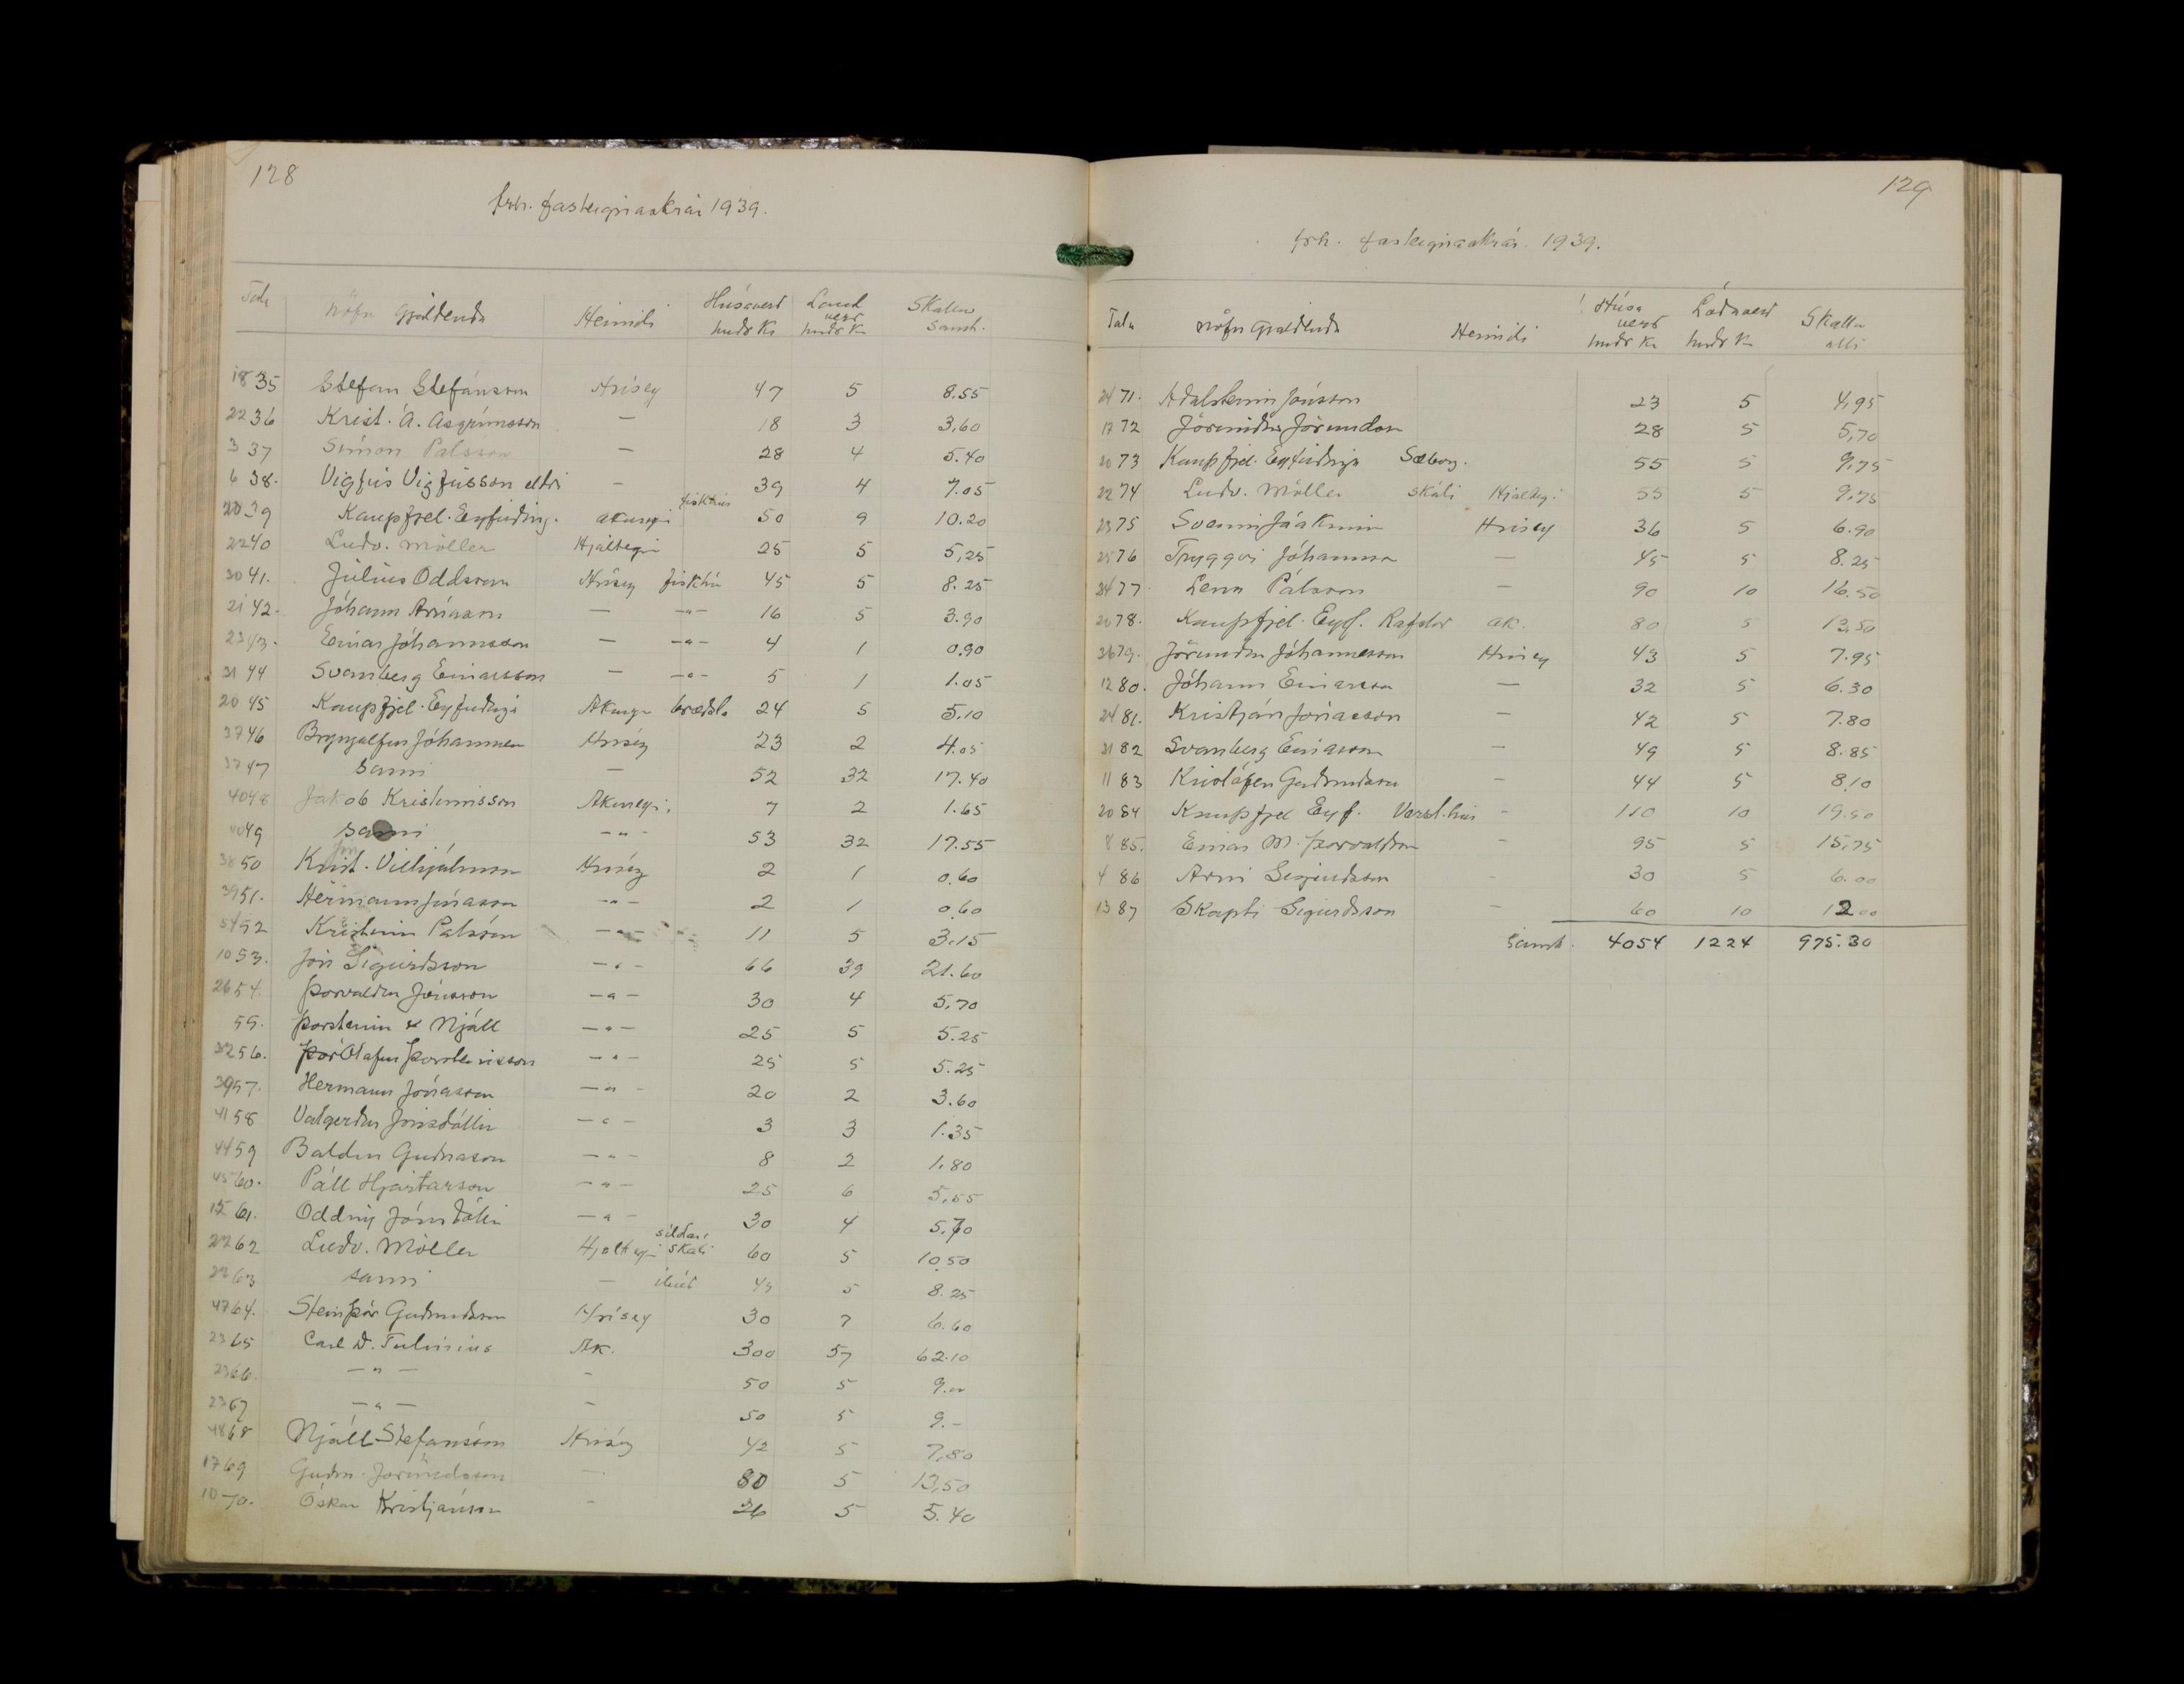 128
frh. fasteignaskrár 1939.
Tala Nöfn Gjaldenda Heimili Húsaverð hndr Kr Land verð hndr Kr Skattur samt.
18 35 Stefan Stefánsson Hrisey 47 5 8.55
22 36 Krist. Á. Asgrímsson — 18 3 3.60
3 37 Símon Palsson — 28 4 5.40
6 38. Vigfús Vigfússon eldri — 39 4 7.05
20 39 Kaupfjel. Eyfirðing. akureyri fiskhús 50 9 10.20
22 40 Ludv. Möller Hjalteyri 25 5 5,25
30 41. Júlíus Oddsson Hrísey fiskhús 45 5 8.25
21 42. Jóhann Arnason — -"- 16 5 3.90
23 43. Einar Jóhannsson — -"- 4 1 0.90
31 44 Svanberg Einarsson — -"- 5 1 1.05
20 45 Kaupfjel. Eyfirðinga Akureyri bræðsla 24 5 5.10
37 46 Brynjolfur Jóhannesson Hrísey 23 2 4.05
37 47 sami — 52 32 17.40
40 48 Jakob Kristinnsson Akureyri. 7 2 1.65
40 49 sami -"- 53 32 17.55
38 50 Krist. Vilhjálmsson Hrísey 2 1 0.60
39 51. Hermann Jónasson -"- 2 1 0.60
54 52 Kristinn Palsson -"- 11 5 3.15
10 53. Jón Sigurðsson -"- 66 39 21.60
26 54. Þorvaldur Jónsson -"- 30 4 5.70
55. Þorsteinn & Njáll -"- 25 5 5.25
32 56. Þór Olafur Þorsteinsson -"- 25 5 5.25
39 57. Hermann Jónasson -"- 20 2 3.60
41 58 Valgerður Jónsdóttir -"- 3 3 1.35
44 59 Baldur Guðnason -"- 8 2 1.80
45 60. Páll Hjartarson -"- 25 6 5,55
15 61. Oddný Jónsdóttir -"- 30 4 5.70
22 62 Ludv. Möller Hjalteyri síldar skáli 60 5 10.50
22 63 sami — 45 5 8.25
47 64. Steinþór Guðmundsson Hrísey 30 7 6.60
23 65 Carl D. Tulinius Ak. 300 57 62.10
23 66. —"— - 50 5 9.00
23 67 —"— - 50 5 9.-
48 68 Njáll Stefansson Hrísey 42 5 7,80
17 69 Guðm. Jörundsson — 80 5 13,50
10 70. Óskar Kristjánsson - 26 5 5.40
129
frh. fasteignaskrár. 1939.
Tala Nöfn Gjaldenda Heimili Húsa verð hndr Kr Lóðaverð hndr Kr Skattur alls
24 71. Aðalsteinn Jónsson 23 5 4,95
17 72 Jörundur Jörundsson 28 5 5,70
20 73 Kaupfjel. Eyfirðinga Sæborg. 55 5 9.75
22 74 Ludv. Möller skáli Hjalteyri 55 5 9.75
23 75 Svavinn Jóakimsson Hrisey 36 5 6.90
25 76 Tryggvi Jóhannsson — 45 5 8.25
24 77. Lenn Pálsson — 90 10 16.50
20 78. Kaupfjel. Eyf. Rafstöð ak. 80 5 13,50
36 79. Jörundur Jóhannesson Hrisey 43 5 7.95
12 80. Jóhann Einarsson — 32 5 6.30
24 81. Kristján Jónasson — 42 5 7.80
31 82 Svanberg Einarsson — 49 5 8.85
11 83 Kristófer Guðmundsson - 44 5 8.10
20 84 Kaupfjel Eyf. Versl.hús - 110 10 19.50
8 85. Einar M. Þorvaldsson - 95 5 15,75
4 86 Arni Sigurðsson - 30 5 6.00
13 87 Skapti Sigurðsson - 60 10 12.00
Samt. 4054 1224 975.30